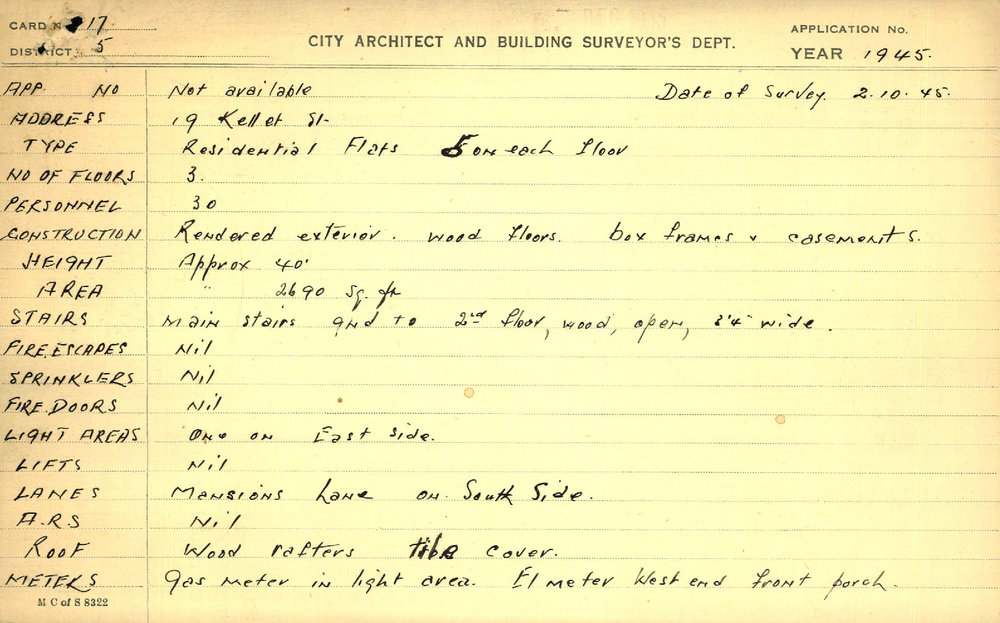 CARD No 17
DISTRICT 5
CITY ARCHITECT AND BUILDING SURVEYOR'S DEPT.
APPLICATION No.
YEAR 1945.
APP. NO Not available Date of Survey. 2.10.45.
ADDRESS 19 Kellet St
TYPE Residential Flats 5 on each floor
NO OF FLOORS 3.
PERSONNEL 30
CONSTRUCTION Rendered exterior. wood floors. box frames & casements.
HEIGHT Approx 40'
AREA " 2690 sq. ft
STAIRS main stairs gnd to 2nd floor, wood, open, 3'4" wide.
FIRE ESCAPES Nil
SPRINKLERS Nil
FIRE DOORS Nil
LIGHT AREAS One on East side.
LIFTS Nil
LANES Mansions Lane on South Side.
A.R.S Nil
ROOF Wood rafters tile cover.
METERS Gas meter in light area. El meter West end front porch.
M C of S 8322